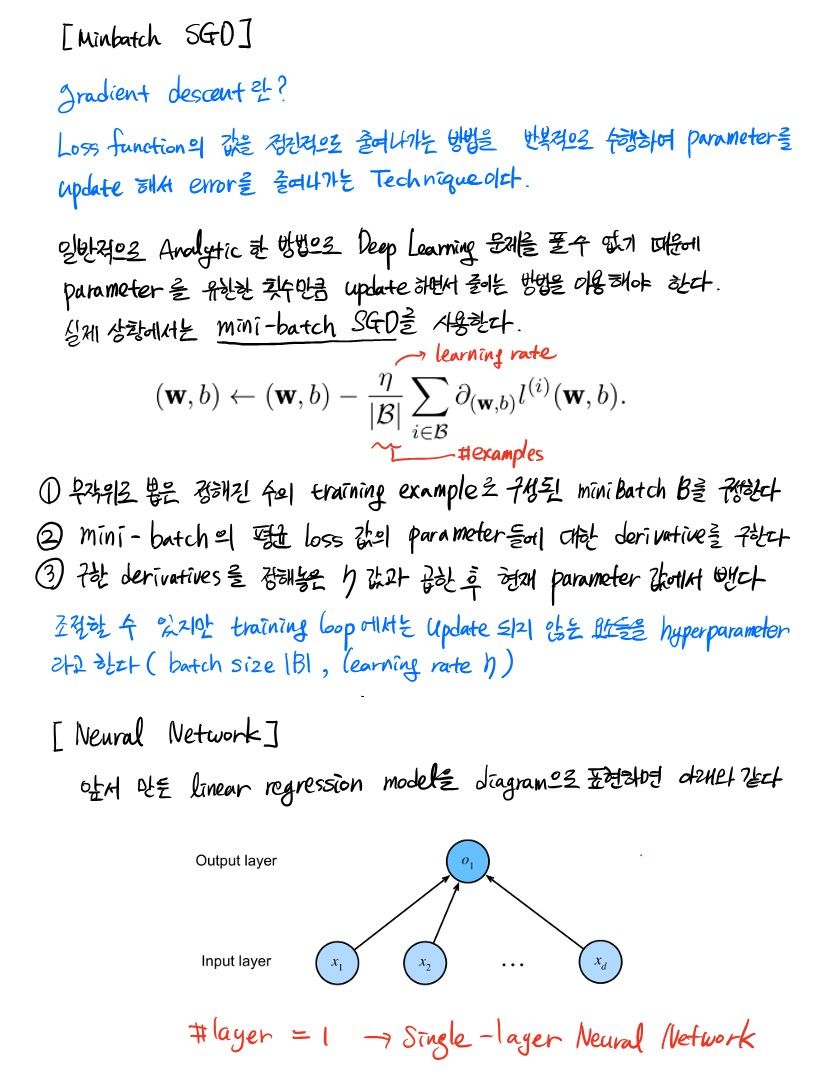 [Minbatch SGD]
gradient descent란?
Loss function의 값을 점진적으로 줄여나가는 방법을 반복적으로 수행하여 parameter를
update 해서 error를 줄여나가는 Technique이다.
일반적으로 Analytic 한 방법으로 Deep Learning 문제를 풀 수 없기 때문에
parameter를 유한한 횟수만큼 update하면서 줄이는 방법을 이용해야 한다.
실제 상황에서는 mini-batch SGD를 사용한다.
→ learning rate
(w, b) ← (w, b) − η/|B| ∑_{i∈B} ∂_{(w,b)} l^{(i)}(w, b).
#examples
① 무작위로 뽑은 정해진 수의 training example로 구성된 miniBatch B를 구성한다
② mini-batch의 평균 loss 값의 parameter들에 대한 derivative를 구한다
③ 구한 derivatives를 정해놓은 η 값과 곱한 후 현재 parameter 값에서 뺀다
조절할 수 있지만 training loop에서는 update 되지 않는 요소들을 hyperparameter
라고 한다 ( batch size |B| , learning rate η )
[ Neural Network ]
앞서 만든 linear regression model을 diagram으로 표현하면 아래와 같다
Output layer o₁
Input layer x₁ x₂ ... x_d
#layer = 1 → Single-layer Neural Network